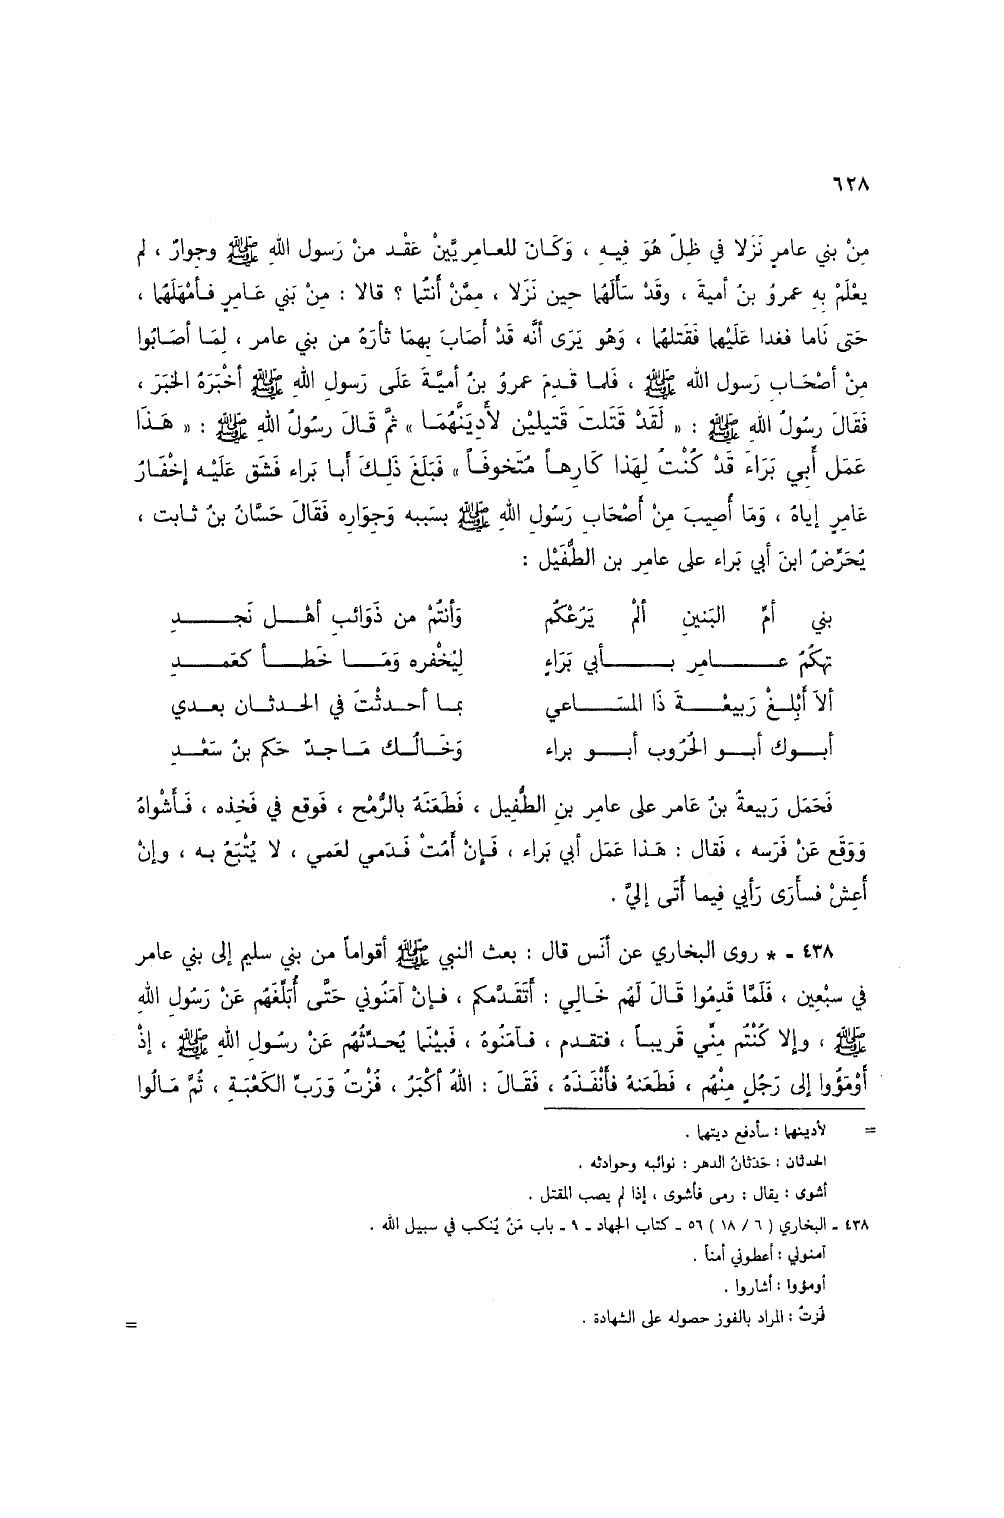 ٦٢٨
مِنْ بني عامرٍ نَزَلا في ظِلّ هُوَ فِيهِ ، وَكَانَ للعامريَّيْنِ عَقْد منْ رَسول اللهِ ﷺ وجوارٌ ، لم
يعْلَمْ بِهِ عمروُ بنُ أميةَ ، وقَدْ سَأَلَهُما حين نَزَلا ، مِمَّنْ أنتُما ؟ قالا : مِنْ بَني عَامرٍ فأمْهَلَهُما ،
حَتى نَاما فغدا عَلَيْهِما فَقَتلهُما ، وَهُو يَرَى أنَّه قَدْ أصَابَ بهمَا ثأرَهُ من بني عامر ، لِمَا أصَابُوا
مِنْ أصْحَاب رَسول الله ﷺ ، فلما قَدِمَ عمروُ بنُ أميَّةَ عَلَى رَسولِ اللهِ ﷺ أخْبَرَهُ الخبَرَ ،
فَقَالَ رَسُولُ اللهِ ﷺ : « لَقَدْ قَتَلتَ قَتيلَيْن لأَدِيَنَّهُمَا » ثمَّ قَالَ رسُولُ اللهِ ﷺ : « هَذَا
عَمَل أَبي بَرَاءَ قَدْ كُنْتُ لِهَذا كَارِهاً مُتَخوفَاً » فَبَلَغَ ذَلِكَ أبا بَراء فَشَق عَلَيْه إخْفَارُ
عَامرٍ إياهُ ، وَمَا أُصِيبَ مِنْ أصْحَابِ رَسُولِ اللهِ ﷺ بسَببه وَجِوَارِه فَقَالَ حَسَّانُ بنُ ثابت ،
يُحَرِّضُ ابنَ أبي بَراء على عامِر بن الطُّفَيْل :
بني أمِّ البَنينِ ألَمْ يَرُعْكُم وَأنتُمْ من ذَوَائبِ أهْل نَجدِ
تهكُّمُ عامرٍ بأَبي بَرَاءٍ ليُخْفره وَمَا خَطأ كعَمْدِ
ألاَ أَبْلِغْ رَبيعَةَ ذَا المسَاعي بما أحدثْتَ في الحدثان بعدي
أبوك أبو الحُرُوب أبو براء وَخَالُك مَاجدٌ حَكم بنُ سَعْدِ
فَحَمَل رَبيعةُ بنُ عَامر على عامر بنِ الطُّفيل ، فَطَعَنَهُ بالرُّمْح ، فَوقع في فَخذِه ، فَأَشْواهُ
وَوَقَع عَنْ فَرَسه ، فَقال : هَذا عَمَل أبي بَراء ، فَإنْ أَمُتْ فَدَمي لعَمي ، لا يُتْبَعُ به ، وإنْ
أَعِشْ فسأرَى رَأيي فيما أَتَى إليَّ .
٤٣٨ - * روى البخاري عن أنَس قال : بعث النبي ﷺ أقواماً من بني سليم إلى بني عامر
في سبْعِين ، فَلَمَّا قَدِمُوا قَالَ لَهُم خَالِي : أَتَقَدَّمكم ، فإنْ آمَنُوني حَتَّى أُبَلِّغَهُم عَنْ رَسُول اللهِ
ﷺ ، وإلا كُنْتُم مِنّي قَريباً ، فتقدم ، فآمَنُوهُ ، فَبَيْنَما يُحدِّثُهُم عَنْ رسُول اللهِ ﷺ ، إذْ
أَوْمَؤُوا إلى رَجُلٍ مِنْهُم ، فَطَعَنهُ فأَنْفَذَهُ ، فَقَالَ : اللهُ أكْبَرُ ، فُزْتُ وَرَبِّ الكَعْبَةِ ، ثُمَّ مَالُوا
= لأدينهما : سأدفع ديتهما .
الحدثان : حَدَثانُ الدهر : نوائبه وحوادثه .
أشوى : يقال : رمى فأشوى ، إذا لم يصب المقتل .
٤٣٨ - البخاري ( ٦ / ١٨ ) ٥٦ - كتاب الجهاد - ٩ - باب مَنْ يُنكب في سبيل الله .
آمنوني : أعطوني أمناً .
أومؤوا : أشاروا .
فُزتُ : المراد بالفوز حصوله على الشهادة .
=